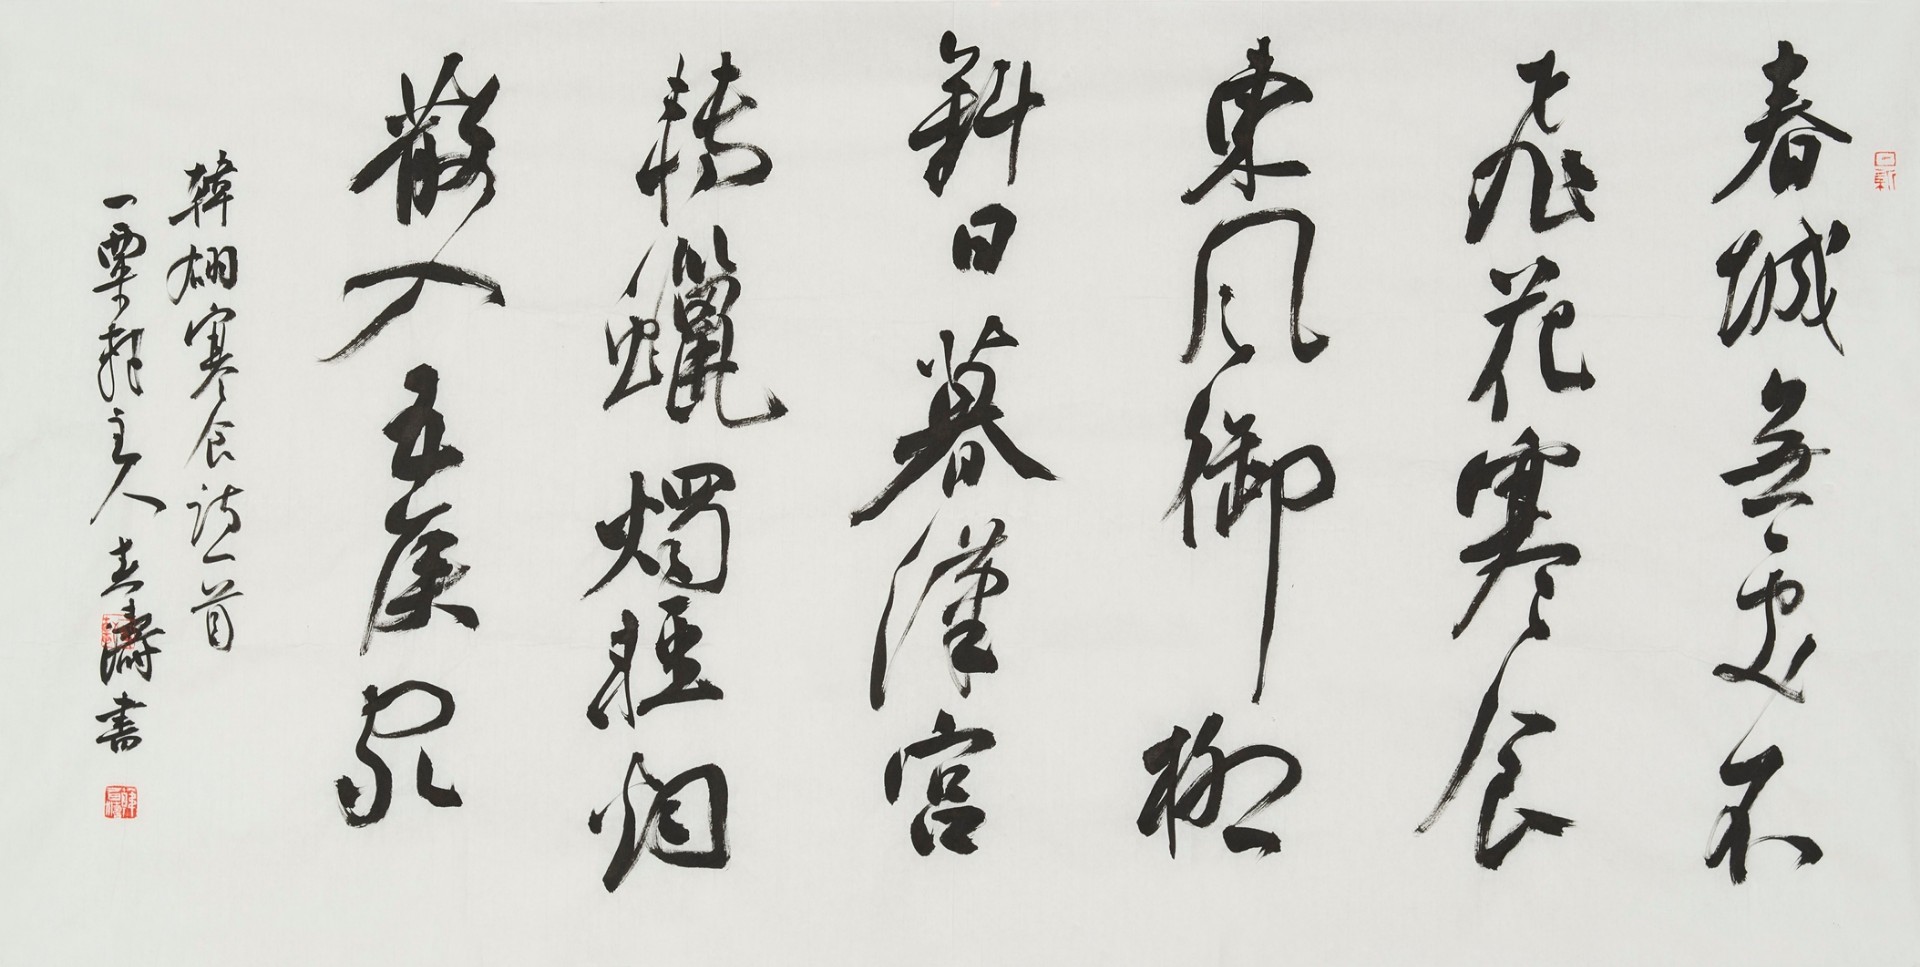 春城無處不
飛花寒食
東風御柳
斜日暮漢宮
傳蠟燭輕烟
散入五侯家
韓翃寒食詩一首
一粟軒主人濤書
日新